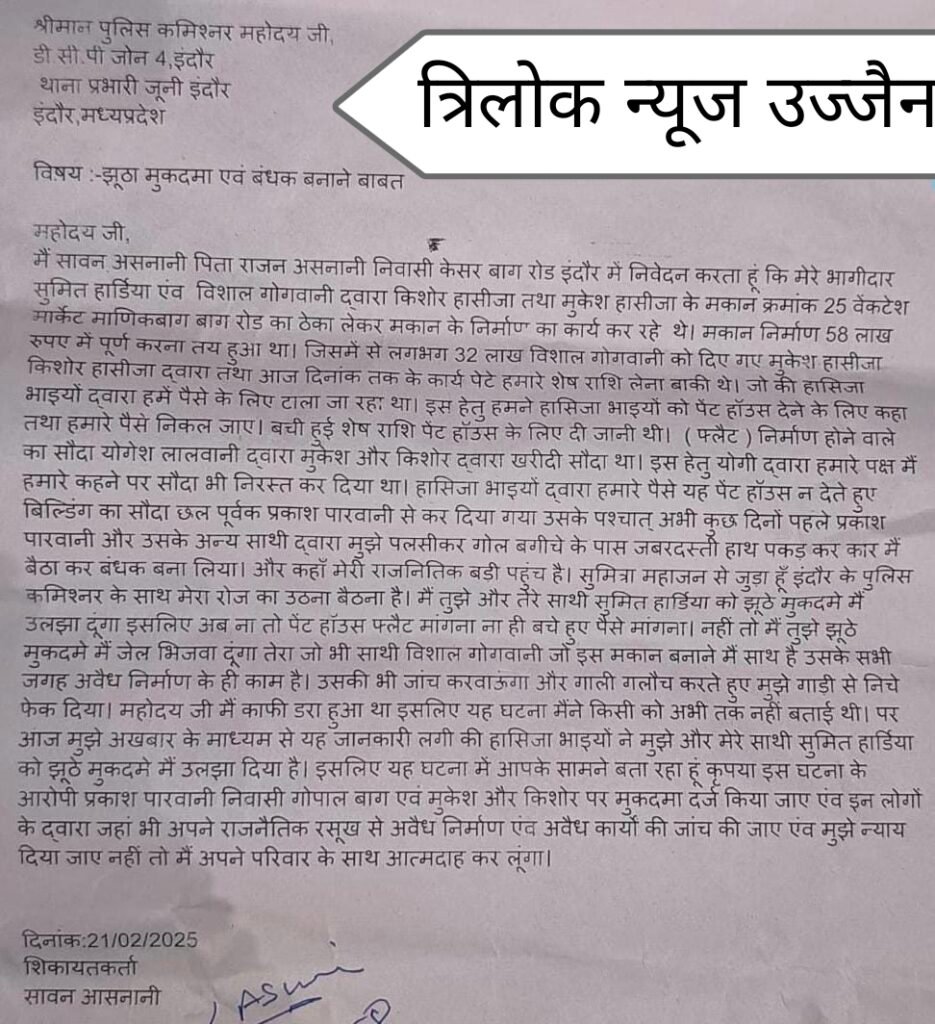 श्रीमान पुलिस कमिश्नर महोदय जी,
डी सी.पी जोन 4,इंदौर
थाना प्रभारी जूनी इंदौर
इंदौर,मध्यप्रदेश
त्रिलोक न्यूज उज्जैन
विषय :-झूठा मुकदमा एवं बंधक बनाने बाबत
महोदय जी,
मैं सावन असनानी पिता राजन असनानी निवासी केसर बाग रोड इंदौर में निवेदन करता हूं कि मेरे भागीदार
सुमित हार्डिया एंव विशाल गोगवानी द्वारा किशोर हासीजा तथा मुकेश हासीजा के मकान क्रमांक 25 वेंकटेश
मार्केट माणिकबाग बाग रोड का ठेका लेकर मकान के निर्माण का कार्य कर रहे थे। मकान निर्माण 58 लाख
रुपए में पूर्ण करना तय हुआ था। जिसमें से लगभग 32 लाख विशाल गोगवानी को दिए गए मुकेश हासीजा
किशोर हासीजा द्वारा तथा आज दिनांक तक के कार्य पेटे हमारे शेष राशि लेना बाकी थे। जो की हासिजा
भाइयों द्वारा हमें पैसे के लिए टाला जा रहा था। इस हेतु हमने हासिजा भाइयों को पेंट हॉउस देने के लिए कहा
तथा हमारे पैसे निकल जाए। बची हुई शेष राशि पेंट हॉउस के लिए दी जानी थी। ( फ्लैट ) निर्माण होने वाले
का सौदा योगेश लालवानी द्वारा मुकेश और किशोर द्वारा खरीदी सौदा था। इस हेतु योगी द्वारा हमारे पक्ष मैं
हमारे कहने पर सौदा भी निरस्त कर दिया था। हासिजा भाइयों द्वारा हमारे पैसे यह पेंट हॉउस न देते हुए
बिल्डिंग का सौदा छल पूर्वक प्रकाश पारवानी से कर दिया गया उसके पश्चात् अभी कुछ दिनों पहले प्रकाश
पारवानी और उसके अन्य साथी द्वारा मुझे पलसीकर गोल बगीचे के पास जबरदस्ती हाथ पकड़ कर कार मैं
बैठा कर बंधक बना लिया। और कहाँ मेरी राजनितिक बडी पहुंच है। सुमित्रा महाजन से जुड़ा हूँ इंदौर के पुलिस
कमिश्नर के साथ मेरा रोज का उठना बैठना है। मैं तुझे और तेरे साथी सुमित हार्डिया को झूठे मुकदमे मैं
उलझा दूंगा इसलिए अब ना तो पेंट हॉउस फ्लैट मांगना ना ही बचे हुए पैसे मांगना। नहीं तो मैं तुझे झूठे
मुकदमे मैं जेल भिजवा दूंगा तेरा जो भी साथी विशाल गोगवानी जो इस मकान बनाने मैं साथ है उसके सभी
जगह अवैध निर्माण के ही काम है। उसकी भी जांच करवाऊंगा और गाली गलौच करते हुए मुझे गाड़ी से निचे
फेक दिया। महोदय जी मैं काफी डरा हुआ था इसलिए यह घटना मैंने किसी को अभी तक नहीं बताई थी। पर
आज मुझे अखबार के माध्यम से यह जानकारी लगी की हासिजा भाइयों ने मुझे और मेरे साथी सुमित हार्डिया
को झूठे मुकदमे मैं उलझा दिया है। इसलिए यह घटना में आपके सामने बता रहा हूं कृपया इस घटना के
आरोपी प्रकाश पारवानी निवासी गोपाल बाग एवं मुकेश और किशोर पर मुकदमा दर्ज किया जाए एंव इन लोगों
के द्वारा जहां भी अपने राजनैतिक रसूख से अवैध निर्माण एंव अवैध कार्यो की जांच की जाए एंव मुझे न्याय
दिया जाए नहीं तो मैं अपने परिवार के साथ आत्मदाह कर लूंगा।
दिनांक:21/02/2025
शिकायतकर्ता
सावन आसनानी